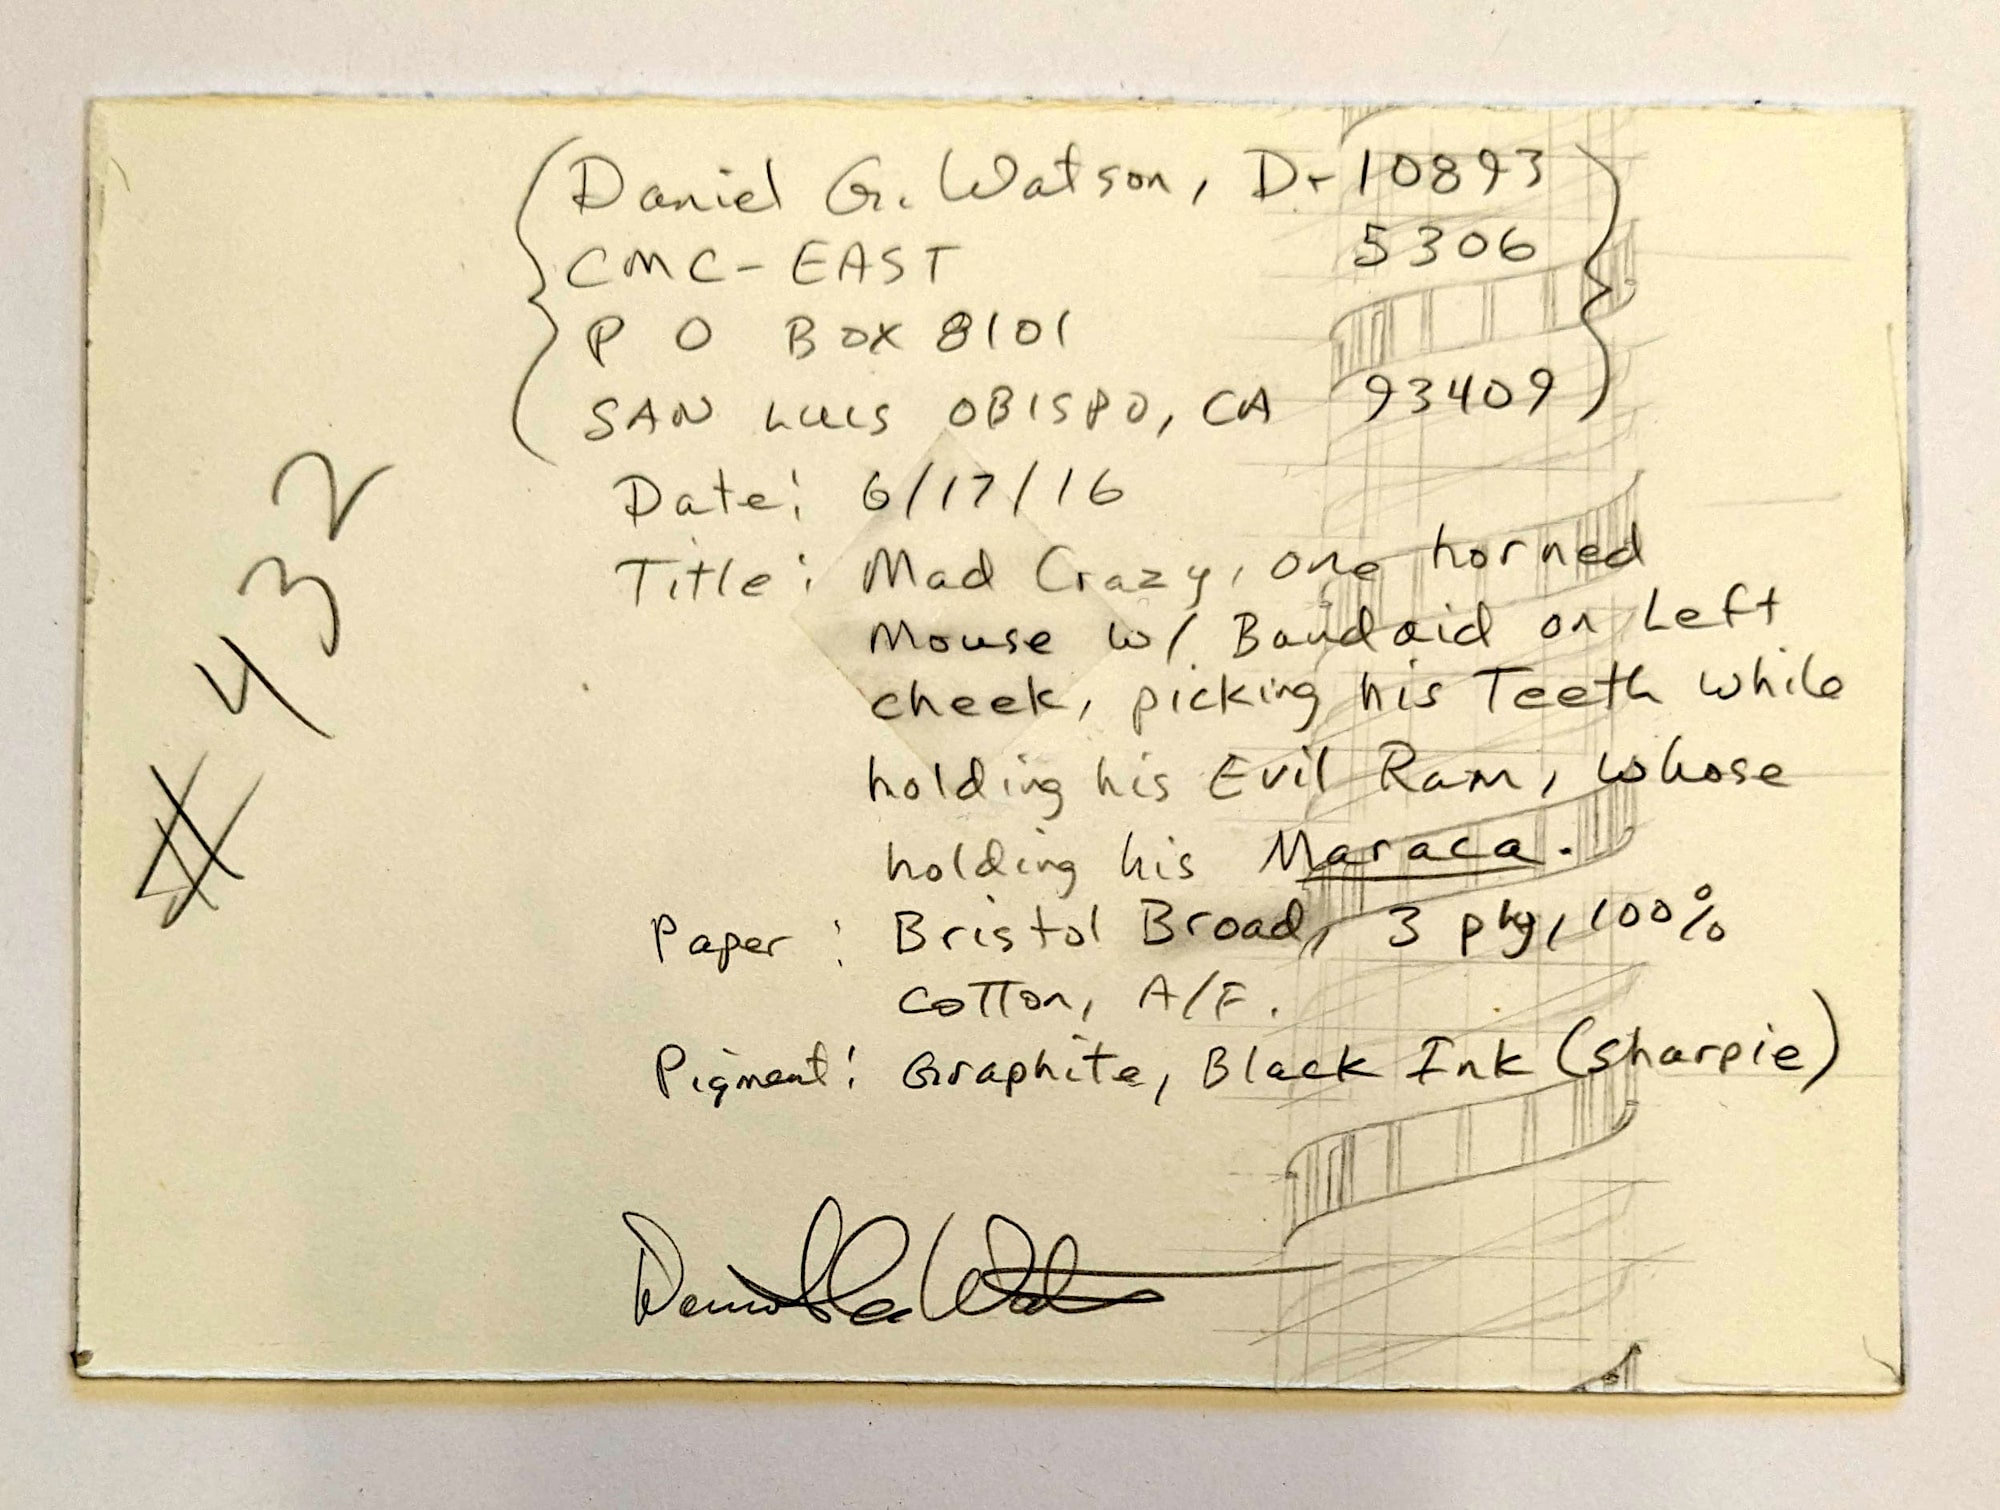 Daniel G. Watson, D-10893
CMC-EAST 5306
P O BOX 8101
SAN LUIS OBISPO, CA 93409
Date: 6/17/16
Title: Mad Crazy, one horned
Mouse w/ Bandaid on Left
cheek, picking his Teeth while
holding his Evil Ram, whose
holding his Maraca.
Paper: Bristol Broad, 3 ply, 100%
Cotton, A/F.
Pigment: Graphite, Black Ink (Sharpie)
Daniel G Watson
#432